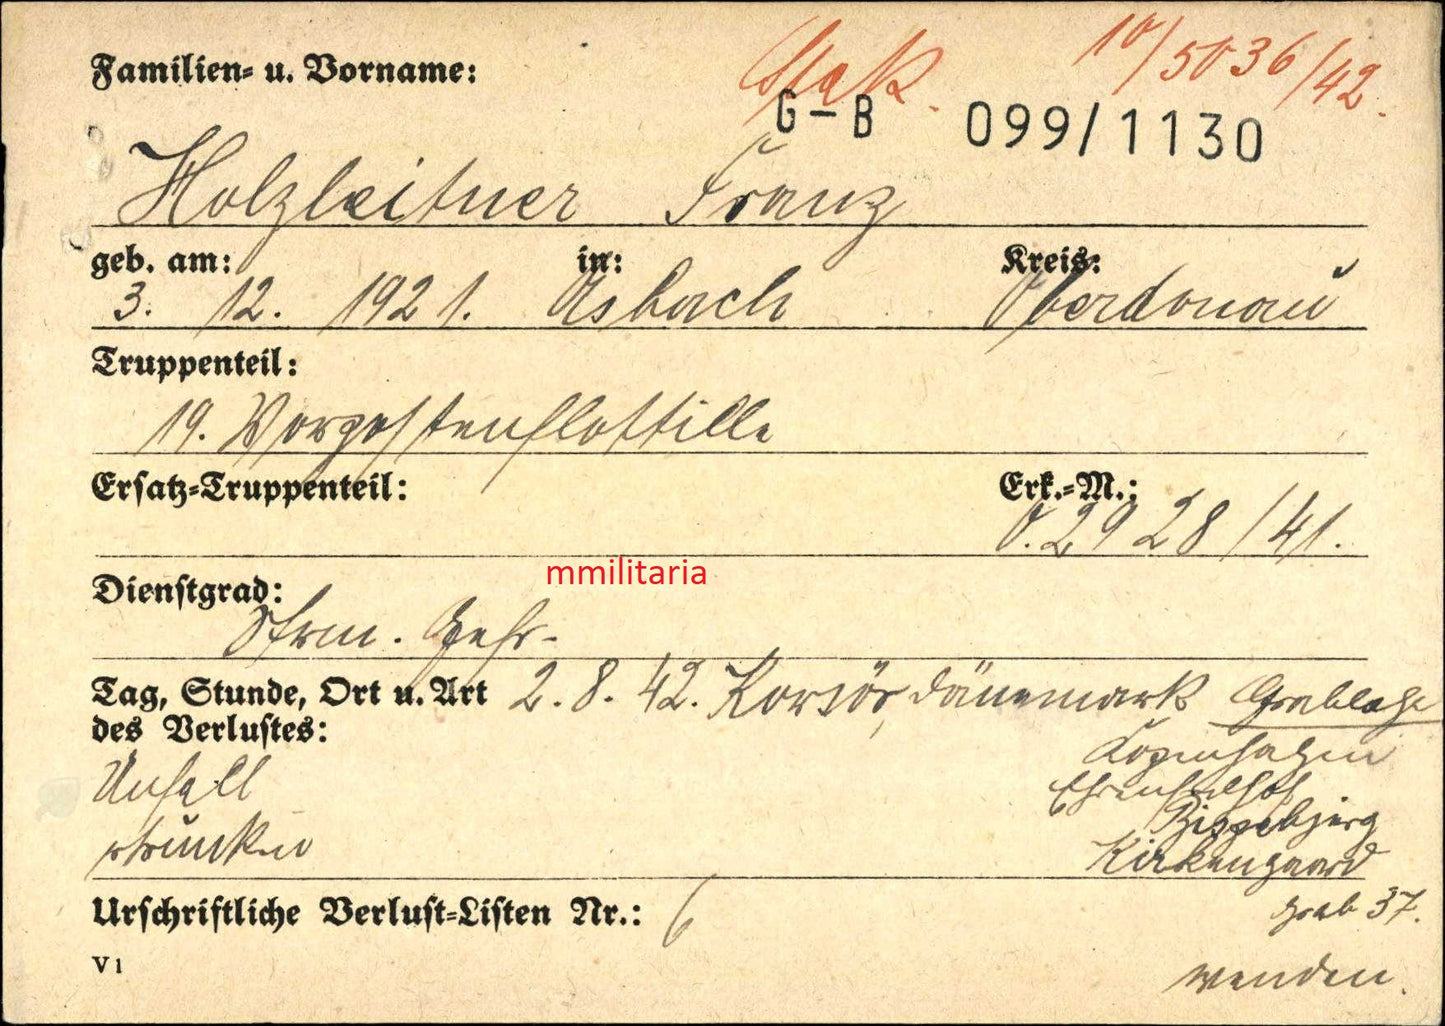 StaK. 10/5036/42.
Familien= u. Vorname:
G-B 099/1130
Holzleitner Franz
geb. am: in: Kreis:
3. 12. 1921. Asbach Oberdonau
Truppenteil:
19. Vorpostenflottille
Ersatz=Truppenteil: Erk.=M.:
O. 2928/41.
mmilitaria
Dienstgrad:
Strm. Gefr.
Tag, Stunde, Ort u. Art 2. 8. 42. Korsör, Dänemark Grablage
des Verlustes: Kopenhagen
Unfall Ehrenfriedhof
Bispebjerg
ertrunken Kirkengaard
Urschriftliche Verlust=Listen Nr.: 6 Grab 37.
V 1 wenden.